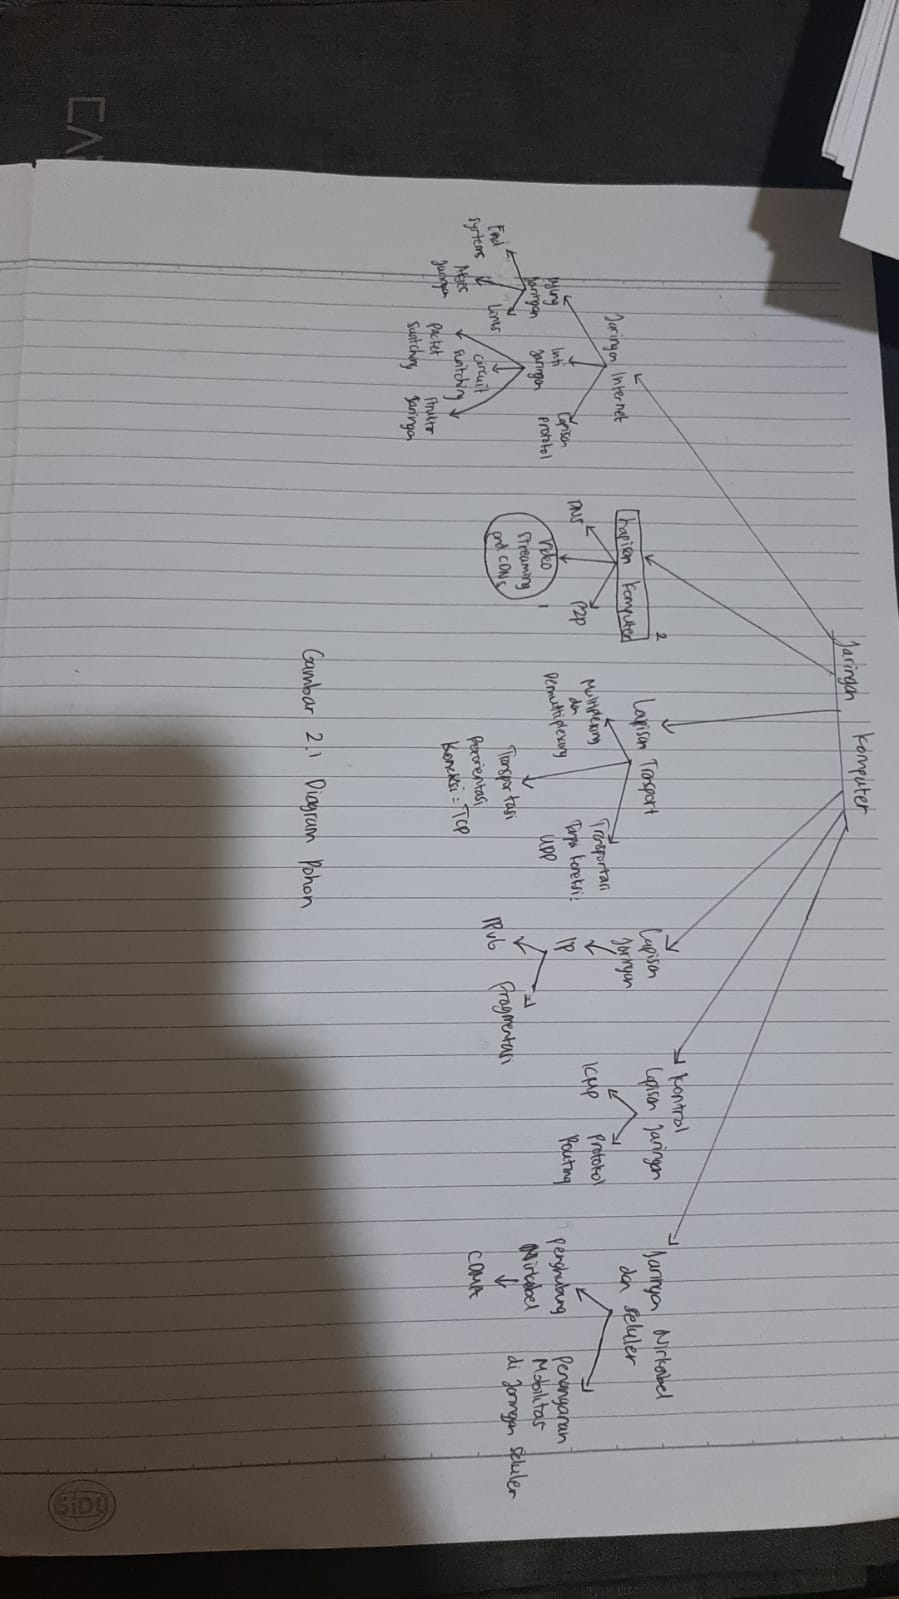 Jaringan Komputer
Jaringan Internet
Ujung
Jaringan
End
systems
Akses
Jaringan
Links
Inti
Jaringan
Packet
Switching
Circuit
Switching
Struktur
Jaringan
Lapisan
protokol
2
Lapisan Komputer
DNS
Video
Streaming
and CDNs
1
P2P
Lapisan Transport
Multiplexing
dan
Demultiplexing
Transportasi
Berorientasi
Koneksi : TCP
Transportasi
Tanpa Koneksi :
UDP
Lapisan
Jaringan
IP
IPv6
Fragmentasi
Kontrol
Lapisan Jaringan
ICMP
Protokol
Routing
Jaringan Nirkabel
dan Seluler
Penghubung
Nirkabel
CDMA
Penanganan
Mobilitas
di Jaringan Seluler
Gambar 2.1 Diagram Pohon
SIDU